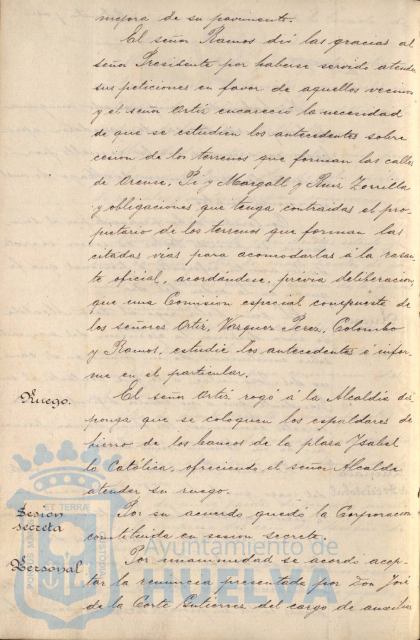 mejora de su pavimento.
El señor Ramos dió las gracias al
señor Presidente por haberse servido atender
sus peticiones en favor de aquellos vecinos
y el señor Ortiz encareció la necesidad
de que se estudien los antecedentes sobre
cesión de los terrenos que forman las calles
de Orense, Pi y Margall y Ruiz Zorrilla
y obligaciones que tenga contraidas el pro-
pietario de los terrenos que forman las
citadas vías para acomodarlas á la rasan-
te oficial, acordándose, previa deliberacion,
que una Comisión especial compuesta de
los señores Ortiz, Vazquez Perez, Colombo
y Ramos, estudie los antecedentes é infor-
me en el particular.
Ruego.
El señor Ortiz rogó á la Alcaldia dis
ponga que se coloquen los espaldares de
hierro de los bancos de la plaza Ysabel
la Católica, ofreciendo el señor Alcalde
atender su ruego.
Sesión
secreta
Por su acuerdo quedó la Corporacion
constituida en sesion secreta.
Personal
Por unanimidad se acordó acep-
tar la renuncia presentada por Don José
de la Corte Gutierrez del cargo de auxiliar
ET TERRAE
Ayuntamiento de
HUELVA